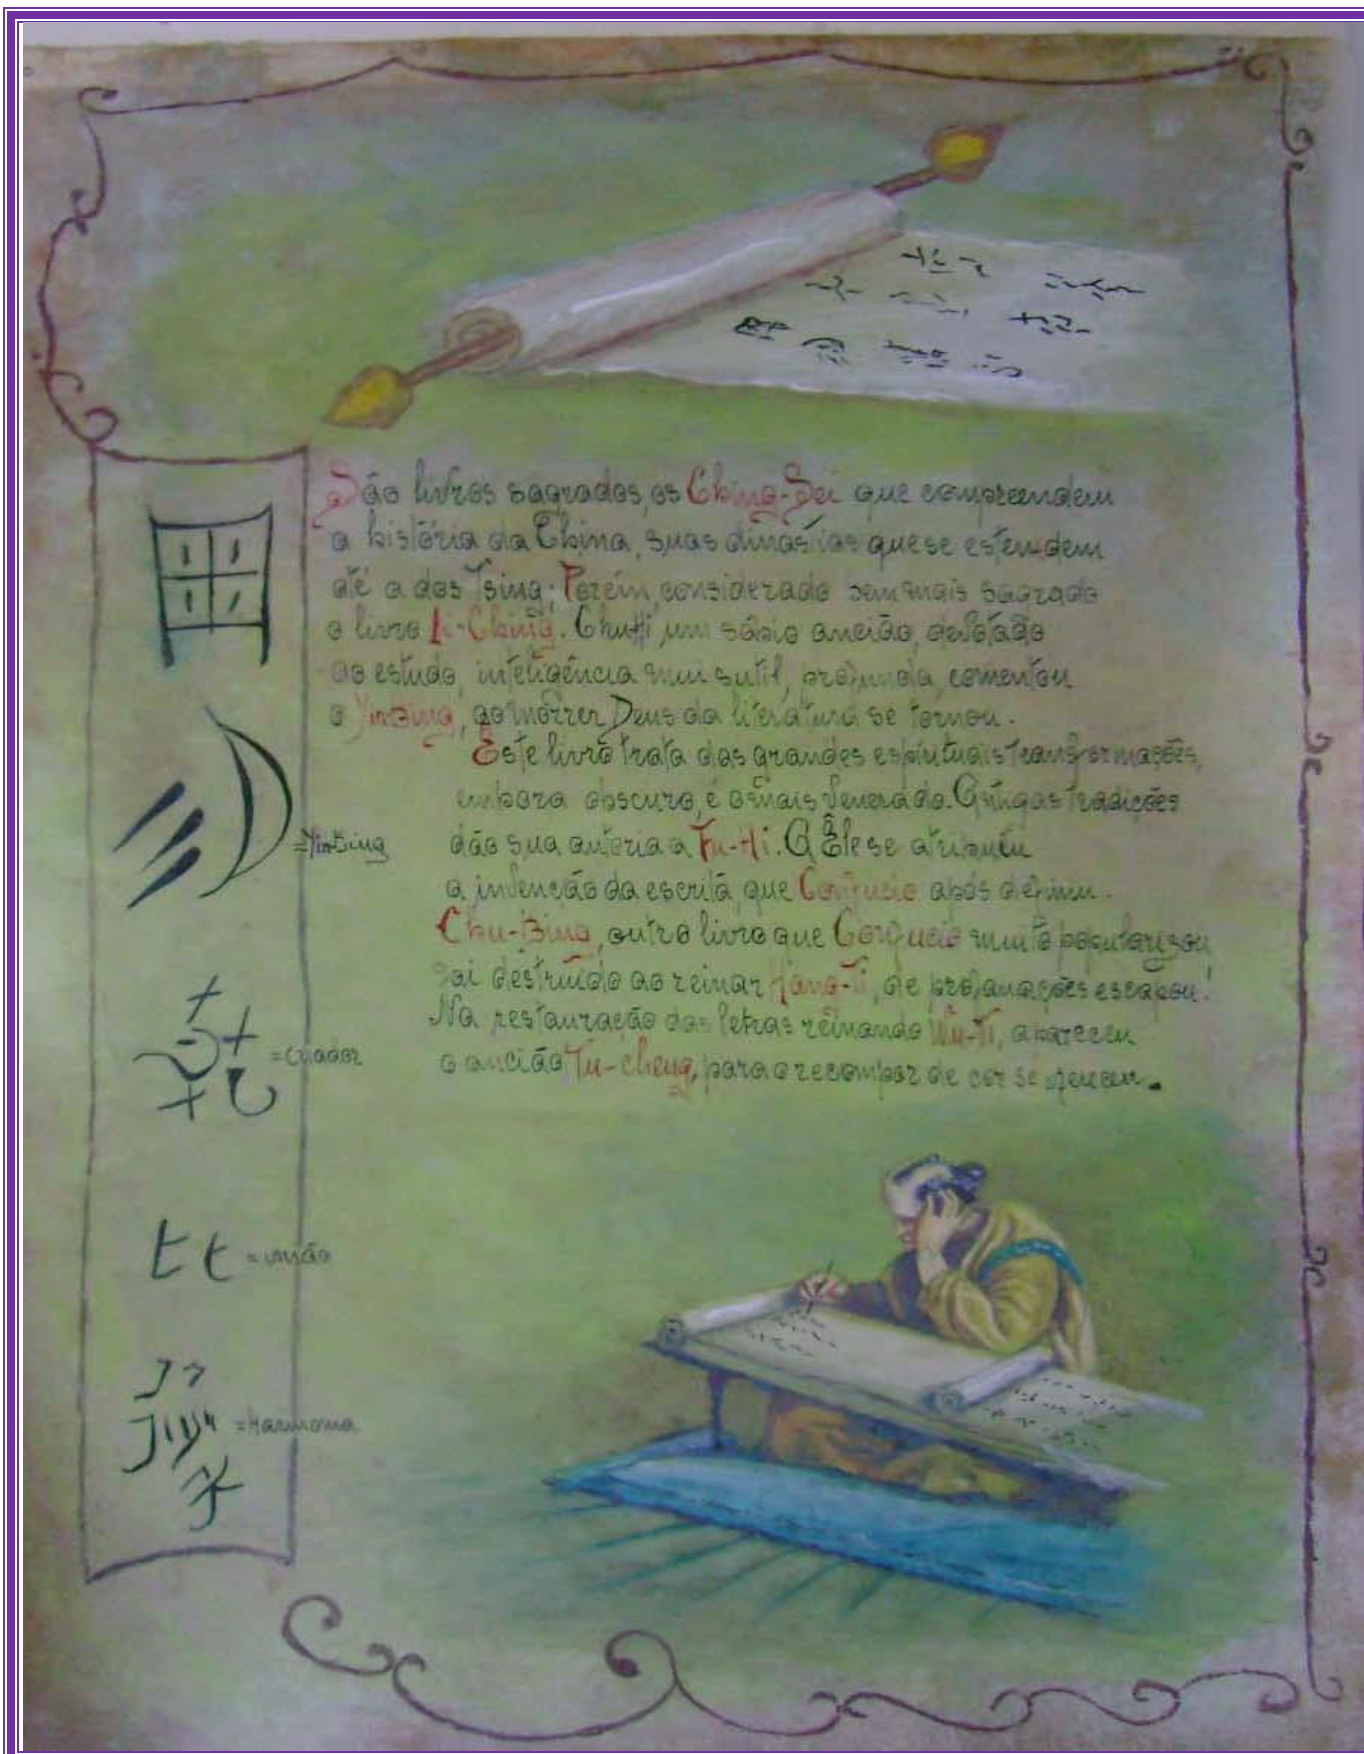 São livros sagrados, os Ching-Sei que compreendem
a história da China, suas dinastias que se estendem
até a dos Tsing; Porém, considerado bem mais sagrado
o livro Li-Ching. Chu-Hi, um sábio ancião, devotado
ao estudo, inteligência mui sutil, profunda, comentou
o YinBing, ao morrer Deus da literatura se tornou.
Este livro trata das grandes espirituais transformações,
embora obscuro, é o mais venerado. Antigas tradições
dão sua autoria a Fu-Hi. A Êle se atribuiu
a invenção da escrita, que Confucio após definiu.
Chu-Bing, outro livro que Confucio muito popularizou,
foi destruído ao reinar Hang-Ti, de profanações escapou!
Na restauração das letras reinando Wu-Ti, apareceu
o ancião Tu-cheng, para o recompor de cor se ofereceu.
=YinBing
=criador
=união
=harmonia